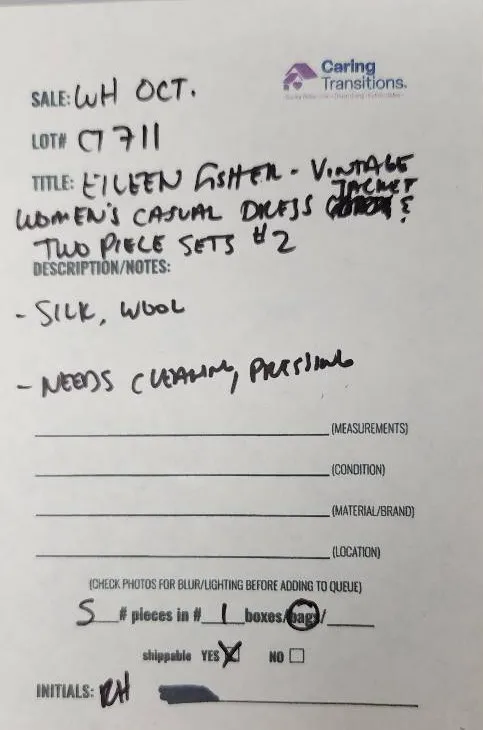 Caring
Transitions.
SALE: WH OCT.
LOT# CT 711
TITLE: EILEEN FISHER - VINTAGE
JACKET
WOMEN'S CASUAL DRESS &
TWO PIECE SETS #2
DESCRIPTION/NOTES:
- SILK, WOOL
- NEEDS CLEANING, PRESSING
(MEASUREMENTS)
(CONDITION)
(MATERIAL/BRAND)
(LOCATION)
(CHECK PHOTOS FOR BLUR/LIGHTING BEFORE ADDING TO QUEUE)
5 # pieces in # 1 boxes/bags/
shippable YES NO
INITIALS: RH